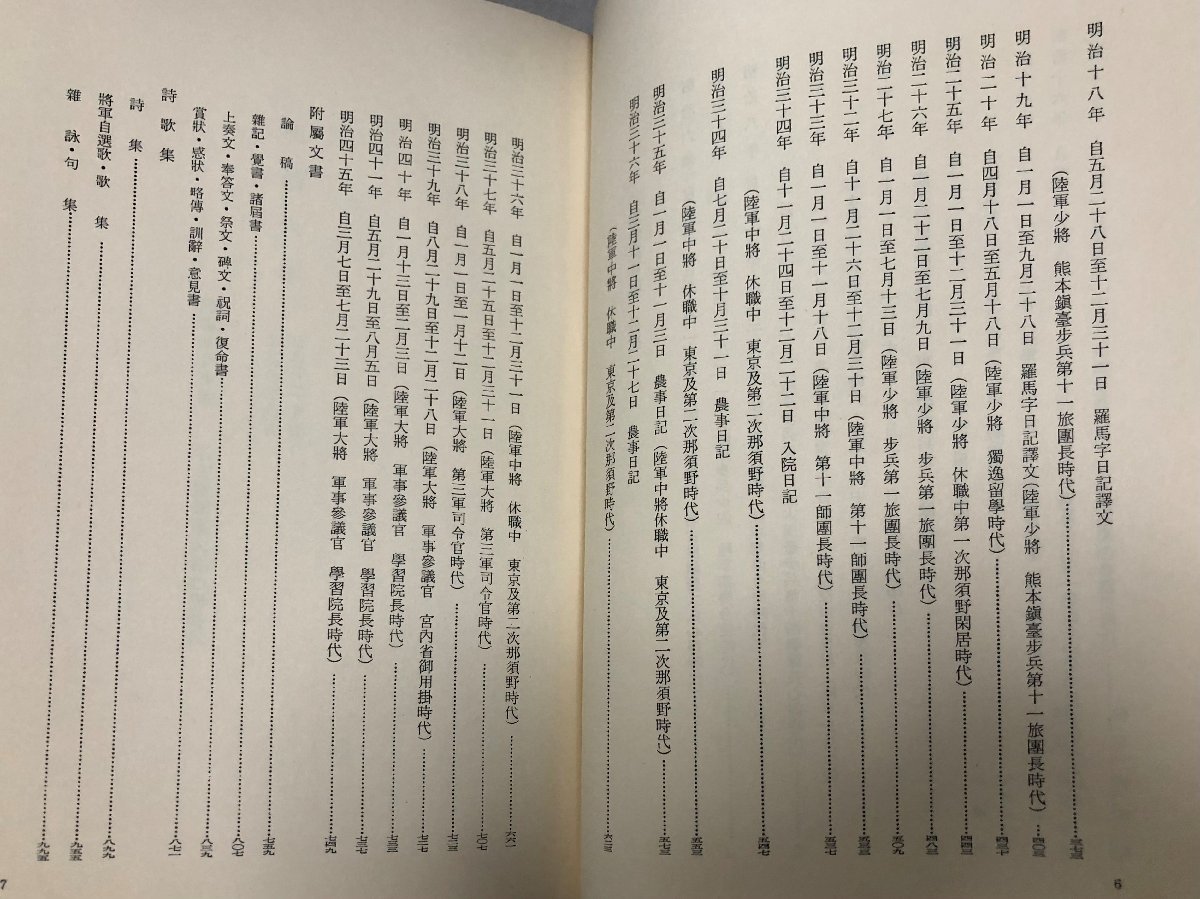 明治十八年 自五月二十八日至十二月三十一日 羅馬字日記譯文
(陸軍少將 熊本鎭臺步兵第十一旅團長時代)……三七三
明治十九年 自一月一日至九月二十八日 羅馬字日記譯文(陸軍少將 熊本鎭臺步兵第十一旅團長時代)……四〇三
明治二十年 自四月十八日至五月十八日(陸軍少將 獨逸留學時代)……四三十
明治二十五年 自一月一日至十二月三十一日(陸軍少將 休職中第一次那須野閑居時代)……四四三
明治二十六年 自一月二十二日至七月九日(陸軍少將 步兵第一旅團長時代)……四八三
明治二十七年 自一月一日至七月十三日(陸軍少將 步兵第一旅團長時代)……五〇九
明治三十二年 自十一月二十六日至十二月三十日(陸軍中將 第十一師團長時代)……五三三
明治三十三年 自一月一日至十一月十八日(陸軍中將 第十一師團長時代)……五三七
明治三十四年 自十一月二十四日至十二月二十二日 入院日記
(陸軍中將 休職中 東京及第二次那須野時代)……五四七
明治三十四年 自七月二十日至十月三十一日 農事日記
(陸軍中將 休職中 東京及第二次那須野時代)……五五三
明治三十五年 自一月一日至十一月三日 農事日記(陸軍中將休職中 東京及第二次那須野時代)……五七三
明治三十六年 自三月十一日至十二月二十七日 農事日記
(陸軍中將 休職中 東京及第二次那須野時代)……六二三
6
明治三十六年 自一月一日至十二月三十一日(陸軍中將 休職中 東京及第二次那須野時代)……六六一
明治三十七年 自五月二十五日至十二月三十一日(陸軍大將 第三軍司令官時代)……七〇七
明治三十八年 自一月一日至一月十二日(陸軍大將 第三軍司令官時代)……七二三
明治三十九年 自八月二十九日至十二月二十八日(陸軍大將 軍事參議官 宮內省御用掛時代)……七二七
明治四十年 自一月十三日至二月三日(陸軍大將 軍事參議官 學習院長時代)……七三三
明治四十一年 自五月二十九日至八月五日(陸軍大將 軍事參議官 學習院長時代)……七三七
明治四十五年 自三月七日至七月二十三日(陸軍大將 軍事參議官 學習院長時代)……七四九
附屬文書
論稿……七五九
雜記・覺書・諸屆書……八〇七
上奏文・奉答文・祭文・碑文・祝詞・復命書……八三九
賞狀・感狀・略傳・訓辭・意見書……八七一
詩歌集
詩集……八九九
將軍自選歌・歌集……九五五
雜詠・句集……九九五
7